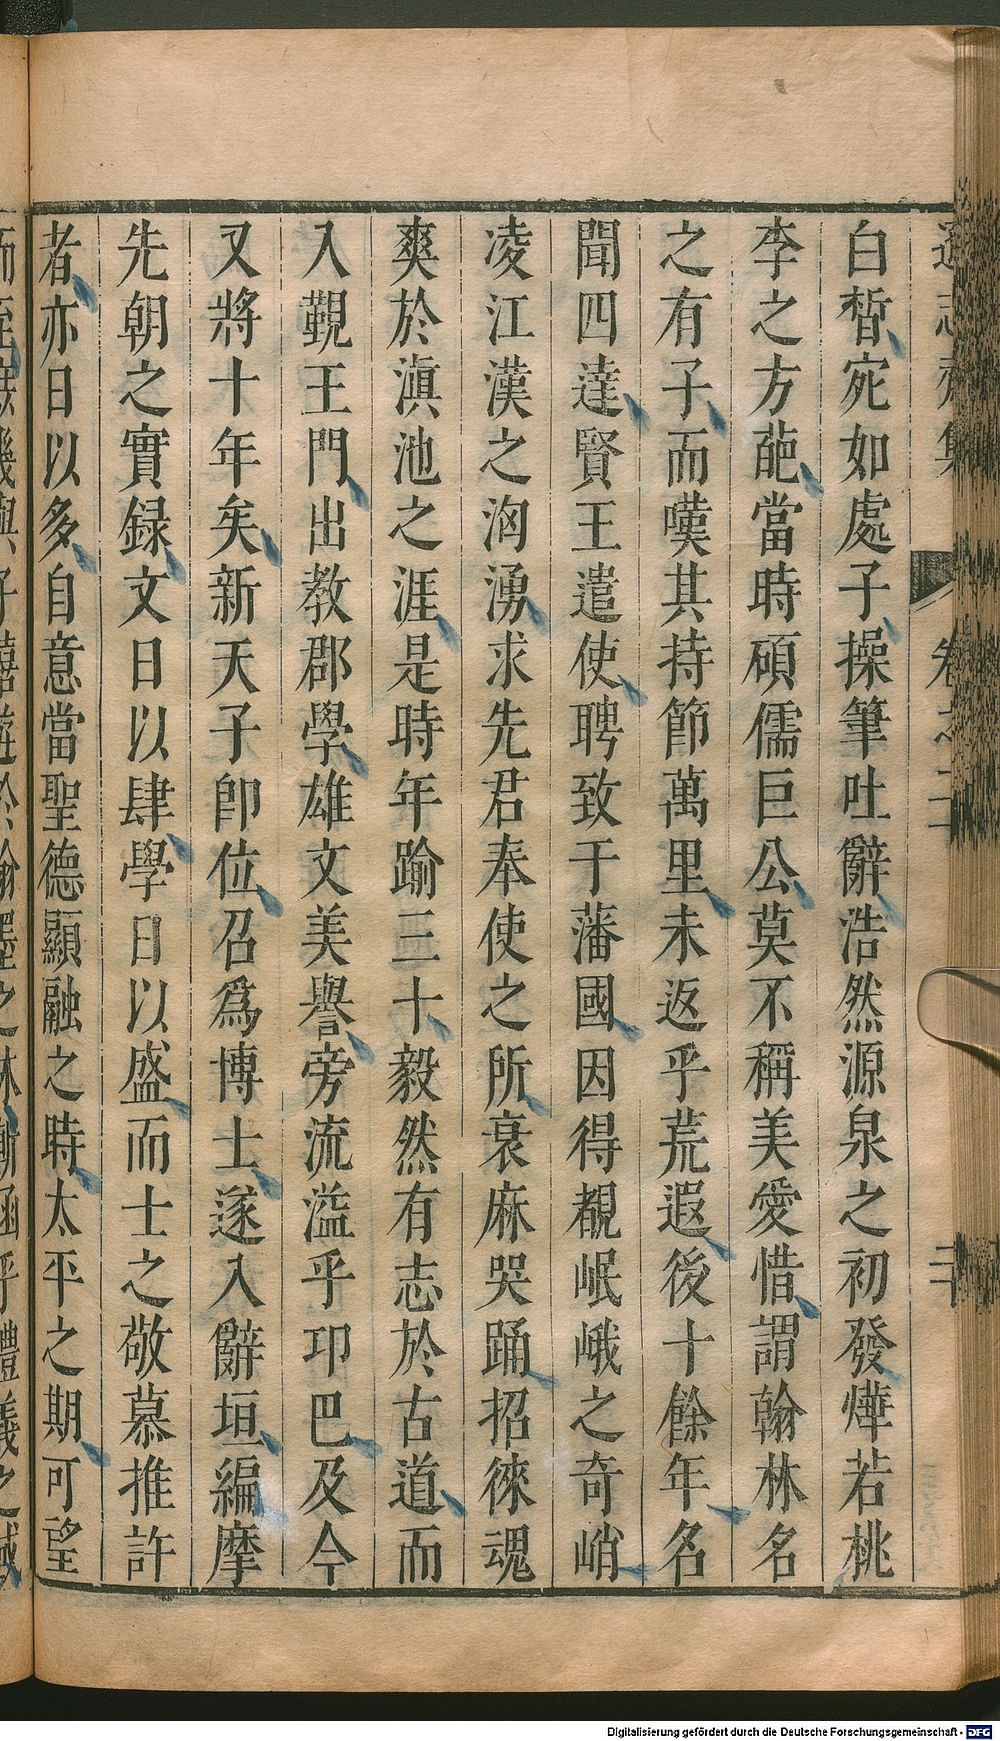 白皙宛如處子操筆吐辭浩然源泉之初發燁若桃
李之方葩當時碩儒巨公莫不稱美愛惜謂翰林名
之有子而嘆其持節萬里未返乎荒遐後十餘年名
聞四達賢王遣使聘致于藩國因得覩岷峨之奇峭
凌江漢之洶湧求先君奉使之所衰麻哭踊招徠魂
爽於滇池之涯是時年踰三十毅然有志於古道而
入覲王門出教郡學雄文美譽旁流溢乎卭巴及今
又將十年矣新天子卽位召爲博士遂入辭垣編摩
先朝之實録文日以肆學日以盛而士之敬慕推許
者亦日以多自意當聖德顯融之時太平之期可望
Digitalisierung gefördert durch die Deutsche Forschungsgemeinschaft - DFG